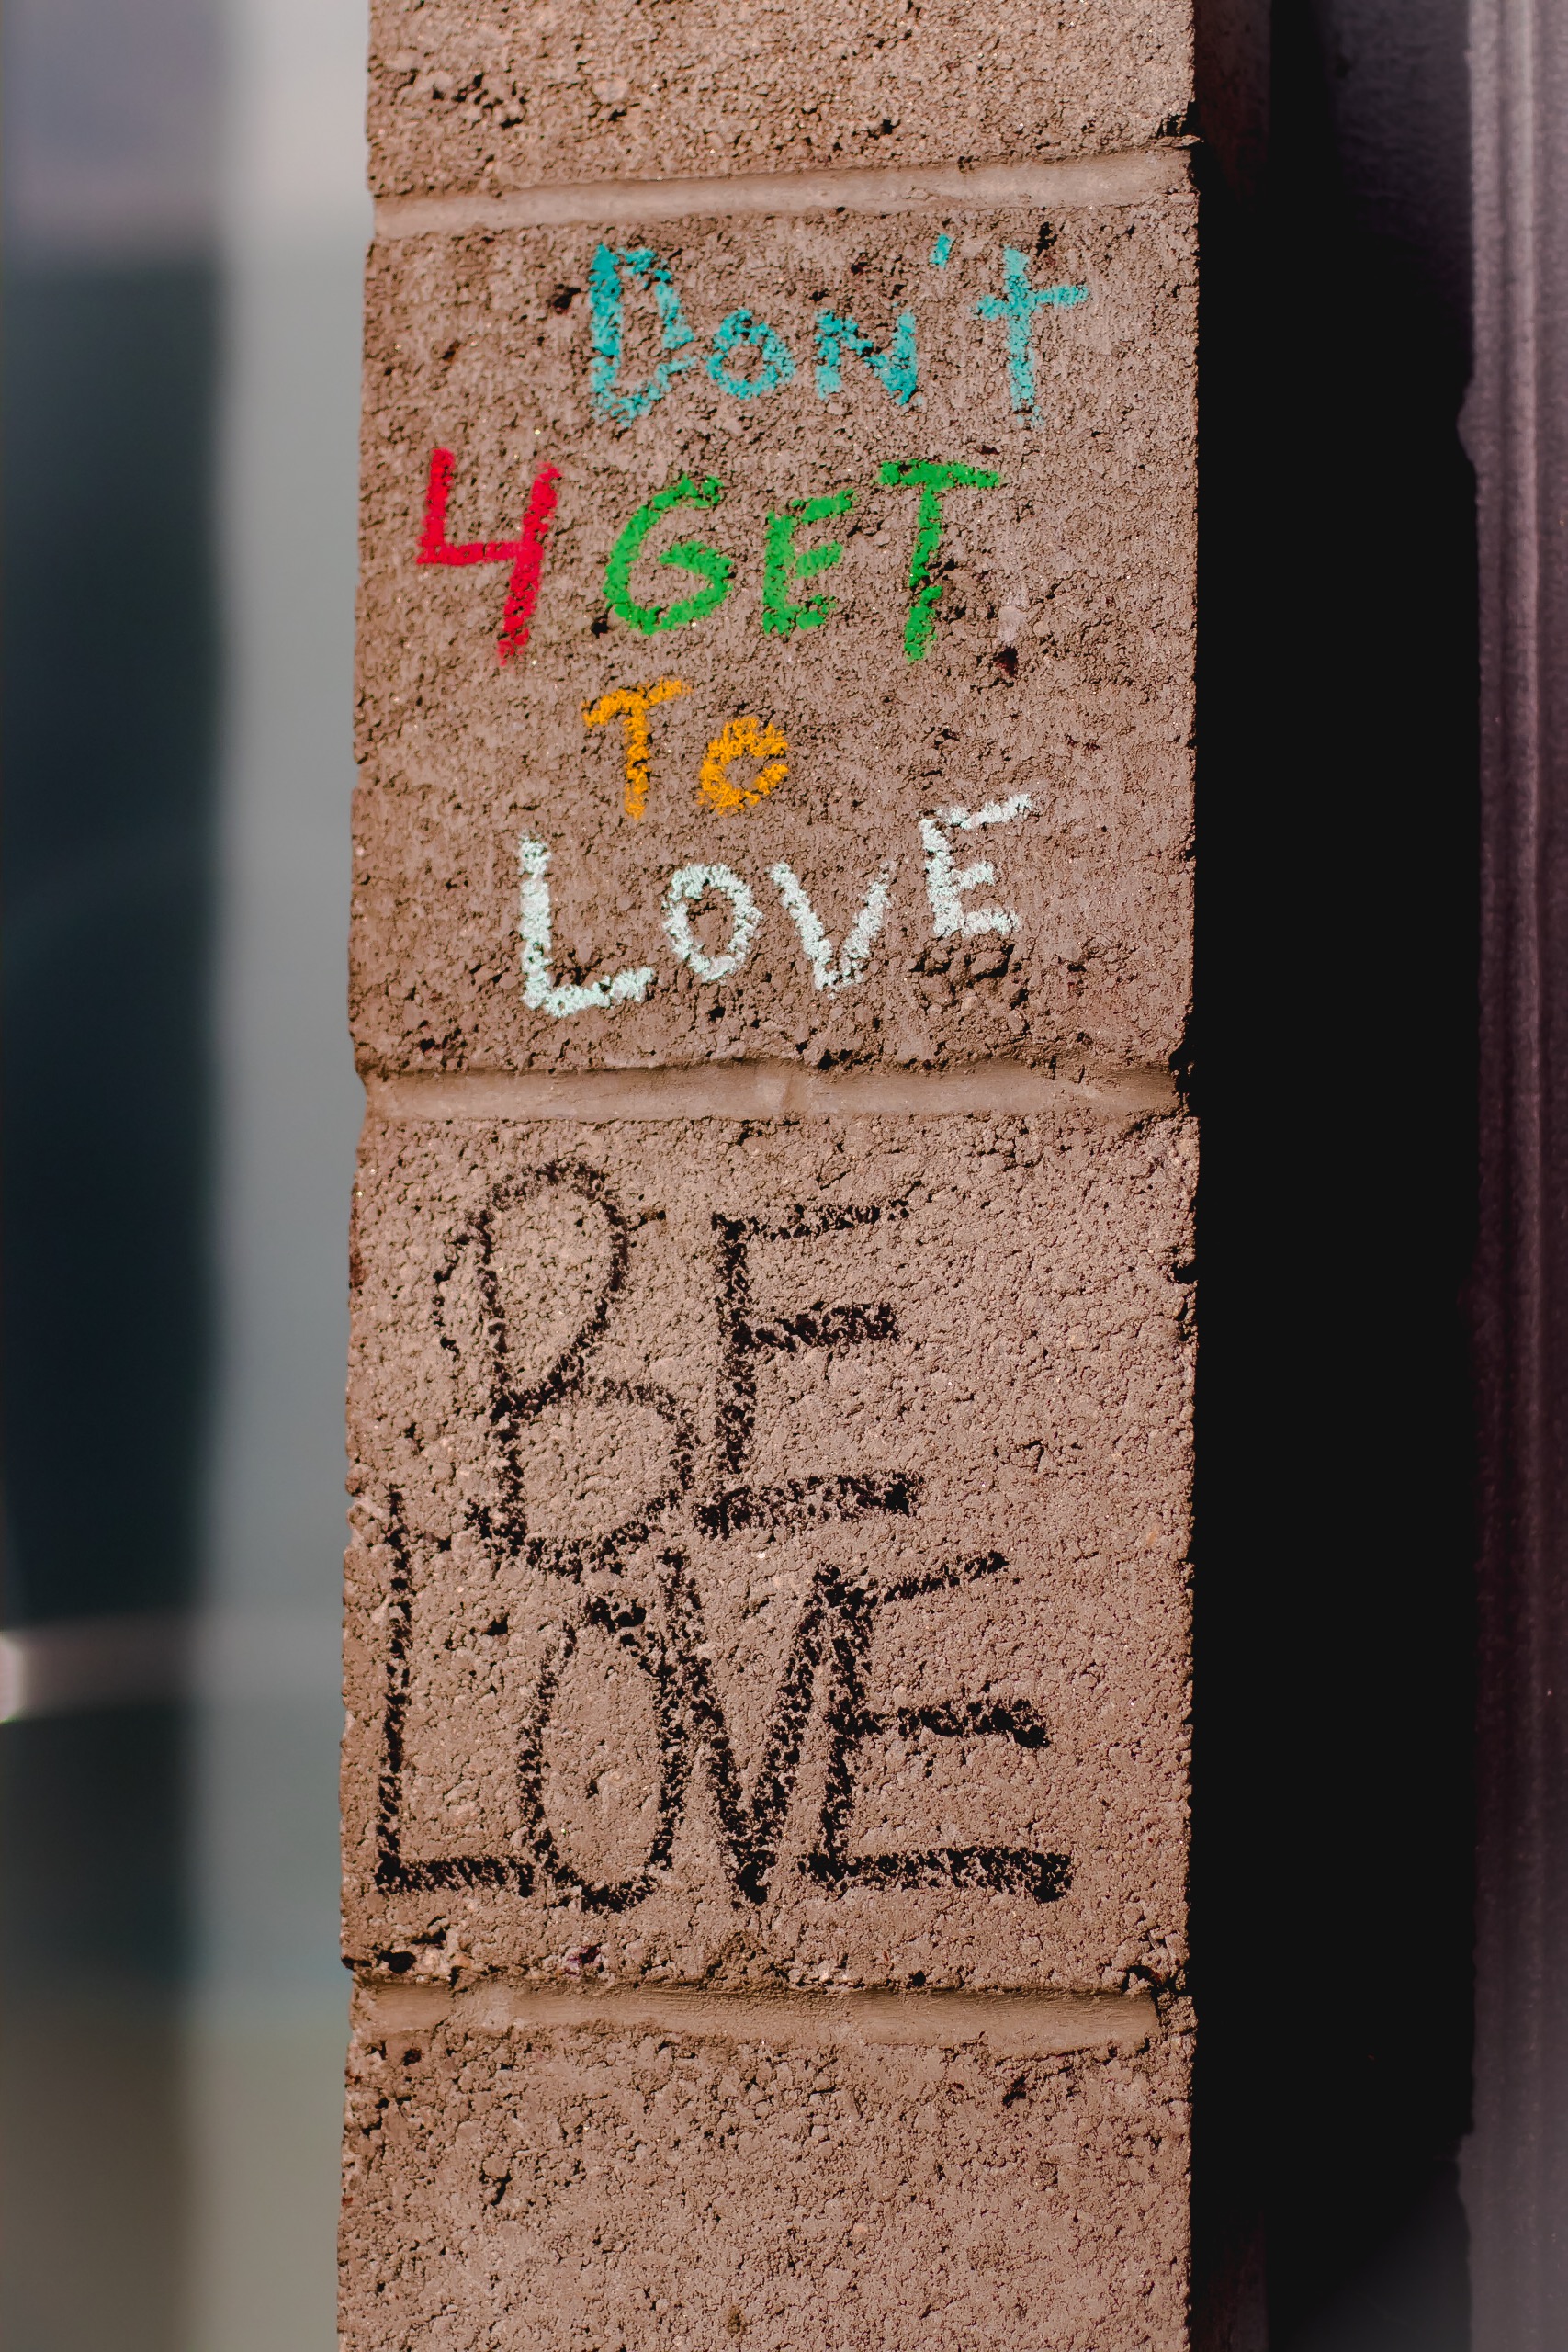 Don't
4GET
To
LOVE
BE
LOVE